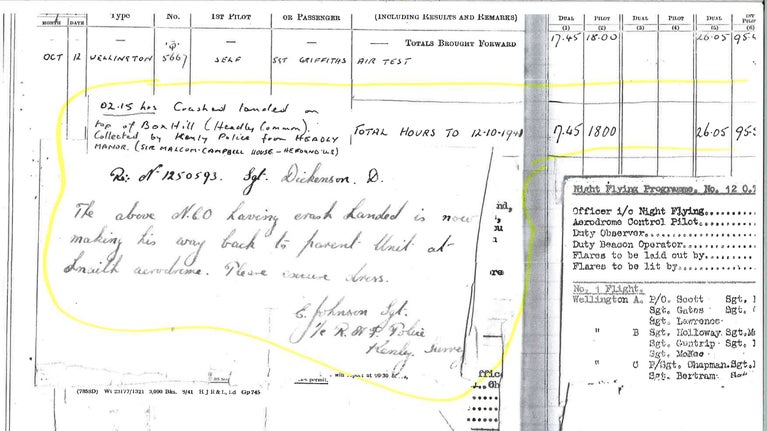 MONTH DATE Type No. 1ST PILOT OR PASSENGER (INCLUDING RESULTS AND REMARKS) DUAL PILOT DUAL PILOT DUAL
(1) (2) (3) (4) (5) (6)
— 'Q' — — — TOTALS BROUGHT FORWARD 17.45 18.00 26.05
OCT 12 WELLINGTON 5667 SELF SGT GRIFFITHS AIR TEST
02.15 hrs Crashed landed on
top of Box Hill (Headly Common).
Collected by Kenly Police from HEADLY
MANOR. (SIR MALCOM·CAMPBELL HOUSE - HE FOUND US)
TOTAL HOURS TO 12-10-1941 17.45 1800 26.05
Re: No 1250593. Sgt. Dickenson. D.
The above N.C.O having crash landed is now
making his way back to parent Unit at
Snaith aerodrome. Please excuse dress.
C. Johnson Sgt.
i/c R.A.F Police
Kenley, Surrey
(785SD) Wt 23177/1321 3,000 Bks. 9/41 H J R & L, Ld Gp 745
Night Flying Programme. No. 12 O.T
Officer i/c Night Flying..........
Aerodrome Control Pilot...........
Duty Observer.....................
Duty Beacon Operator..............
Flares to be laid out by..........
Flares to be lit by...............
No. 1 Flight.
Wellington A. P/O. Scott Sgt.
Sgt. Gates Sgt.
Sgt. Lawrence.
" B Sgt. Holloway. Sgt.
Sgt. Guntrip Sgt.
Sgt. McKee
" C P/Sgt. Chapman. Sgt.
Sgt. Bertram. Sgt